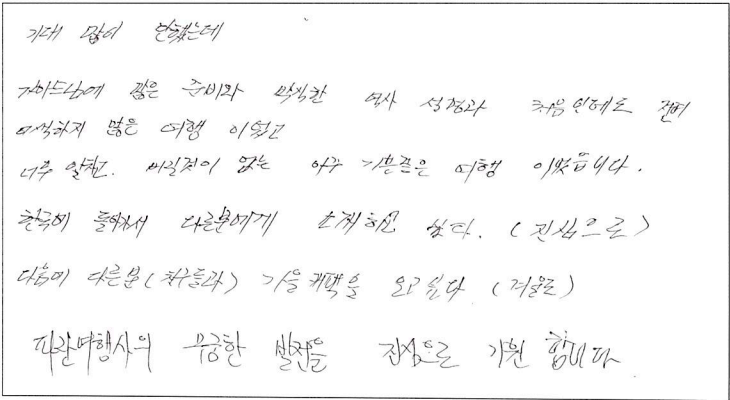 기대 많이 안했는데
가이드님에 많은 준비와 박식한 역사 설명과 처음인데도 전혀
어색하지 않은 여행 이었고
너무 알차고. 버릴것이 없는 아주 기분좋은 여행 이었습니다.
한국에 돌아가서 다른분에게 소개하고 싶다. (진심으로)
다음에 다른분(친구들과) 가을 오고싶다 (겨울도)
파란여행사의 무궁한 발전을 진심으로 기원 합니다